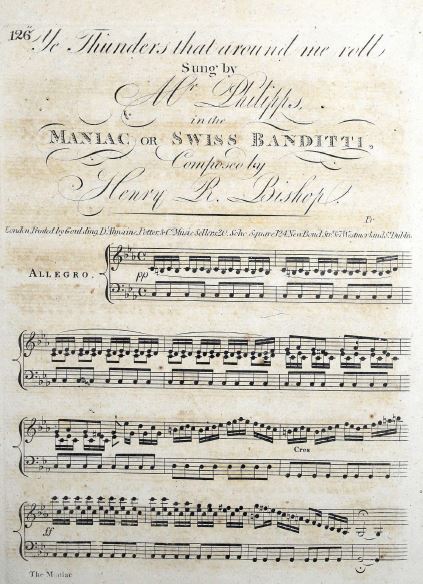 126 Ye Thunders that around me roll
Sung by
Mr. Philipps,
in the
MANIAC OR SWISS BANDITTI,
Composed by
Henry R. Bishop.
Pr
London, Printed by Goulding, D'Almaine, Potter & Co. Music Sellers, 20, Soho Square, 124, New Bond Str. & 7, Westmorland St. Dublin.
ALLEGRO.
pp
Cres
ff
The Maniac